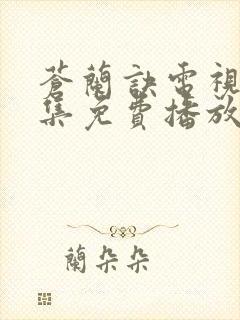 蒼蘭訣電視
集免費播放
蘭朵朵